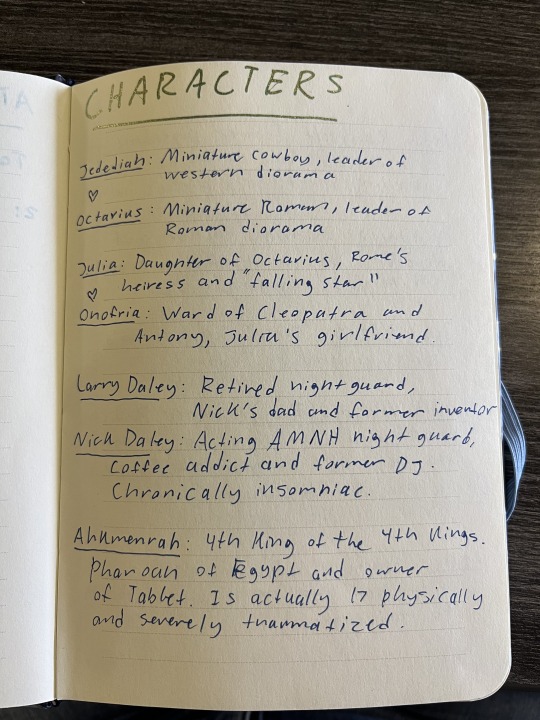 CHARACTERS
Jedediah: Miniature cowboy, leader of
western diorama
♡
Octavius: Miniature Roman, leader of
Roman diorama
Julia: Daughter of Octavius, Rome's
♡ heiress and "falling star"
Onofria: Ward of Cleopatra and
Antony, Julia's girlfriend.
Larry Daley: Retired night guard,
Nick's dad and former inventor
Nick Daley: Acting AMNH night guard,
coffee addict and former DJ.
Chronically insomniac.
Ahkmenrah: 4th King of the 4th Kings.
Pharoah of Egypt and owner
of Tablet. Is actually 17 physically
and severely traumatized.